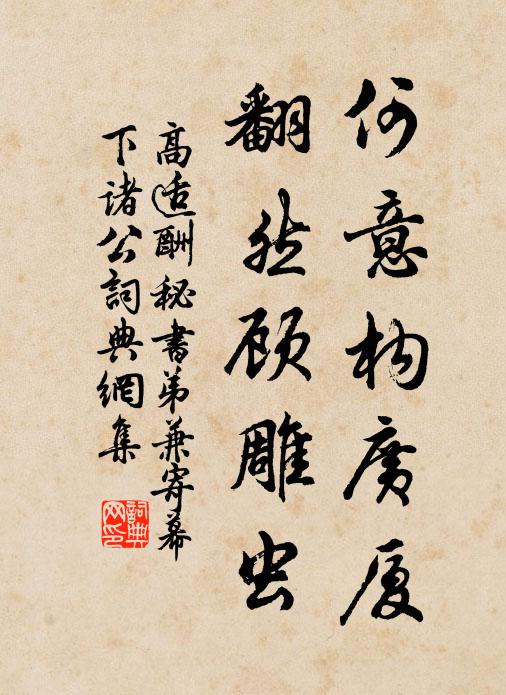 何意构广厦
翻然顾雕虫
高适酬秘書弟兼寄幕
下诸公詞典網集
詞典网印